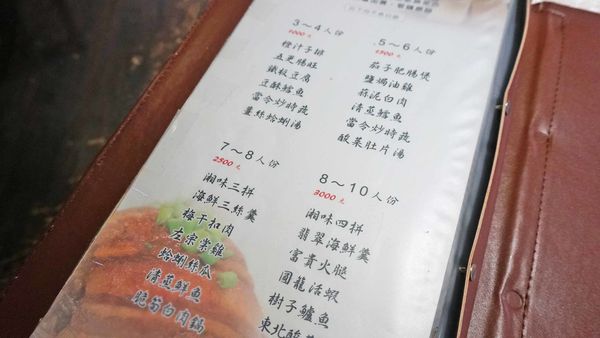 3～4人份
1000元
橙汁子排
五更腸旺
鐵板豆腐
豆酥鱈魚
當令炒時蔬
薑絲蛤蜊湯
5～6人份
1500元
茄子肥腸煲
鹽焗油雞
蒜泥白肉
清蒸鱈魚
當令炒時蔬
酸菜肚片湯
7～8人份
2500元
湘味三拼
海鮮三絲羹
梅干扣肉
左宗棠雞
蛤蜊絲瓜
清蒸鮮魚
脆筍白肉鍋
8～10人份
3000元
湘味四拼
翡翠海鮮羹
富貴火腿
圓籠活蝦
樹子鱸魚
東北酸